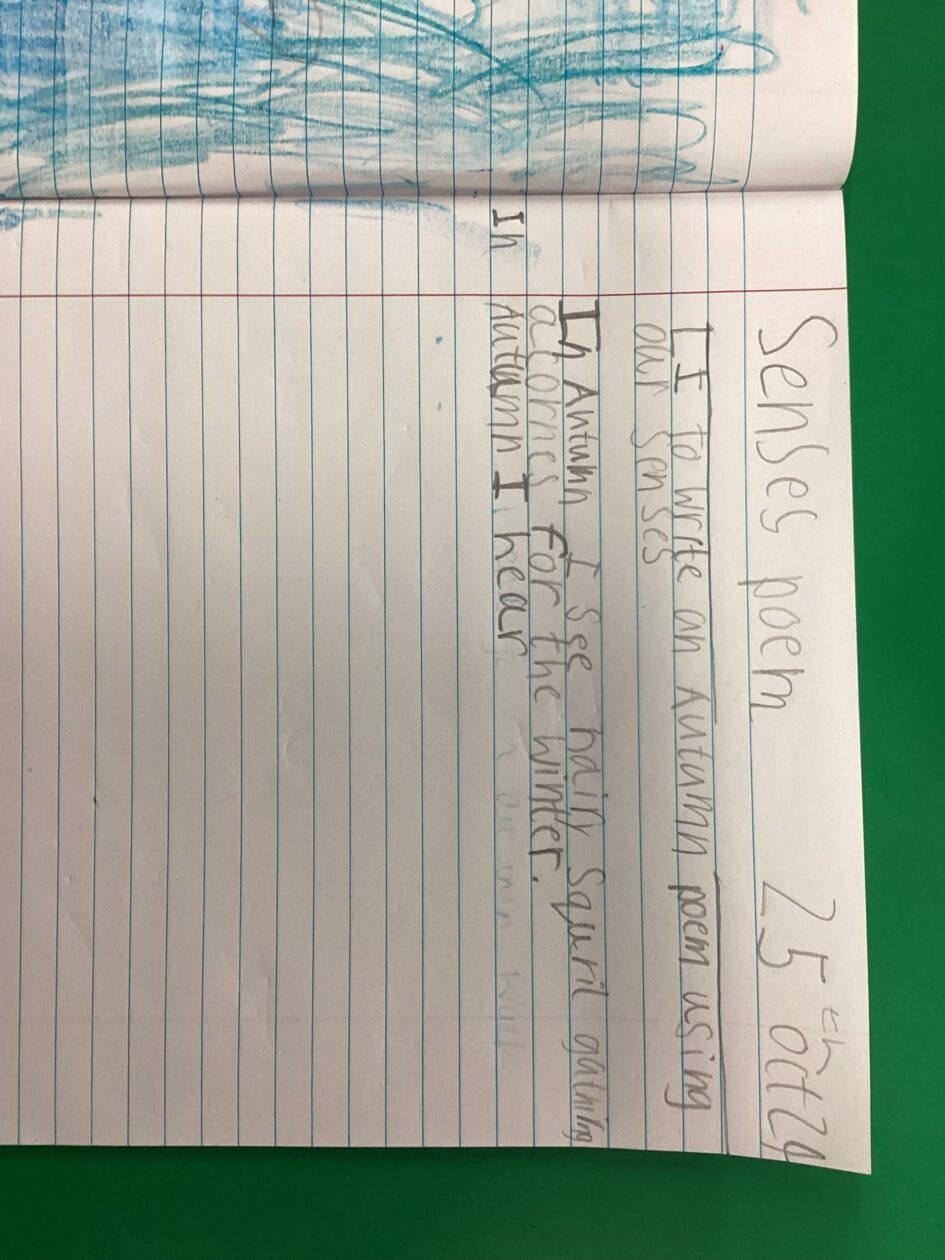 Senses poem 25th Oct 24
LI to write an Autumn poem using
our senses
In Autumn I see hairy Squril gathing
acornes for the winter.
In Autumn I hear